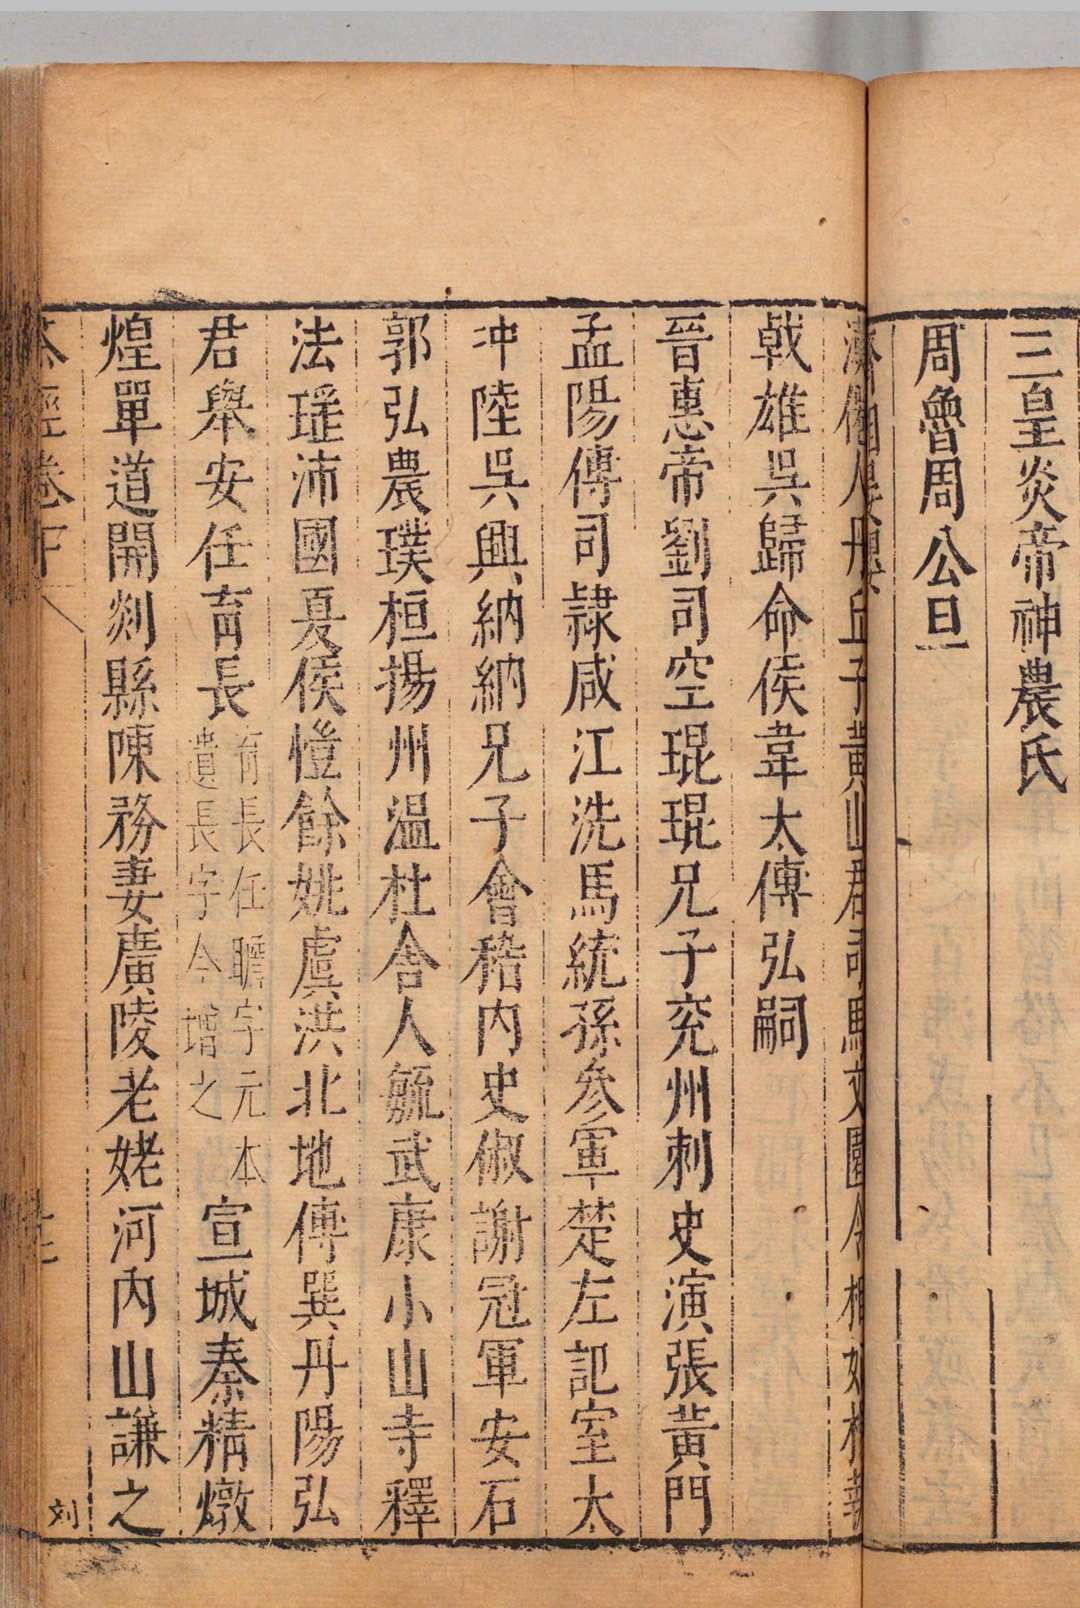 三皇炎帝神農氏
周魯周公旦
丘子黃山君司馬文園令相如
戟雄吳歸命侯韋太傅弘嗣
晉惠帝劉司空琨琨兄子兖州刺史演張黃門
孟陽傅司隷咸江洗馬統孫參軍楚左記室太
冲陸吳興納納兄子會稽内史俶謝冠軍安石
郭弘農璞桓揚州温杜舎人毓武康小山寺釋
法瑶沛國夏侯愷餘姚虞洪北地傅巽丹陽弘
君舉安任育長育長任瞻字元本遺長字今增之宣城秦精燉
煌單道開剡縣陳務妻廣陵老姥河内山謙之
茶經卷下
刘